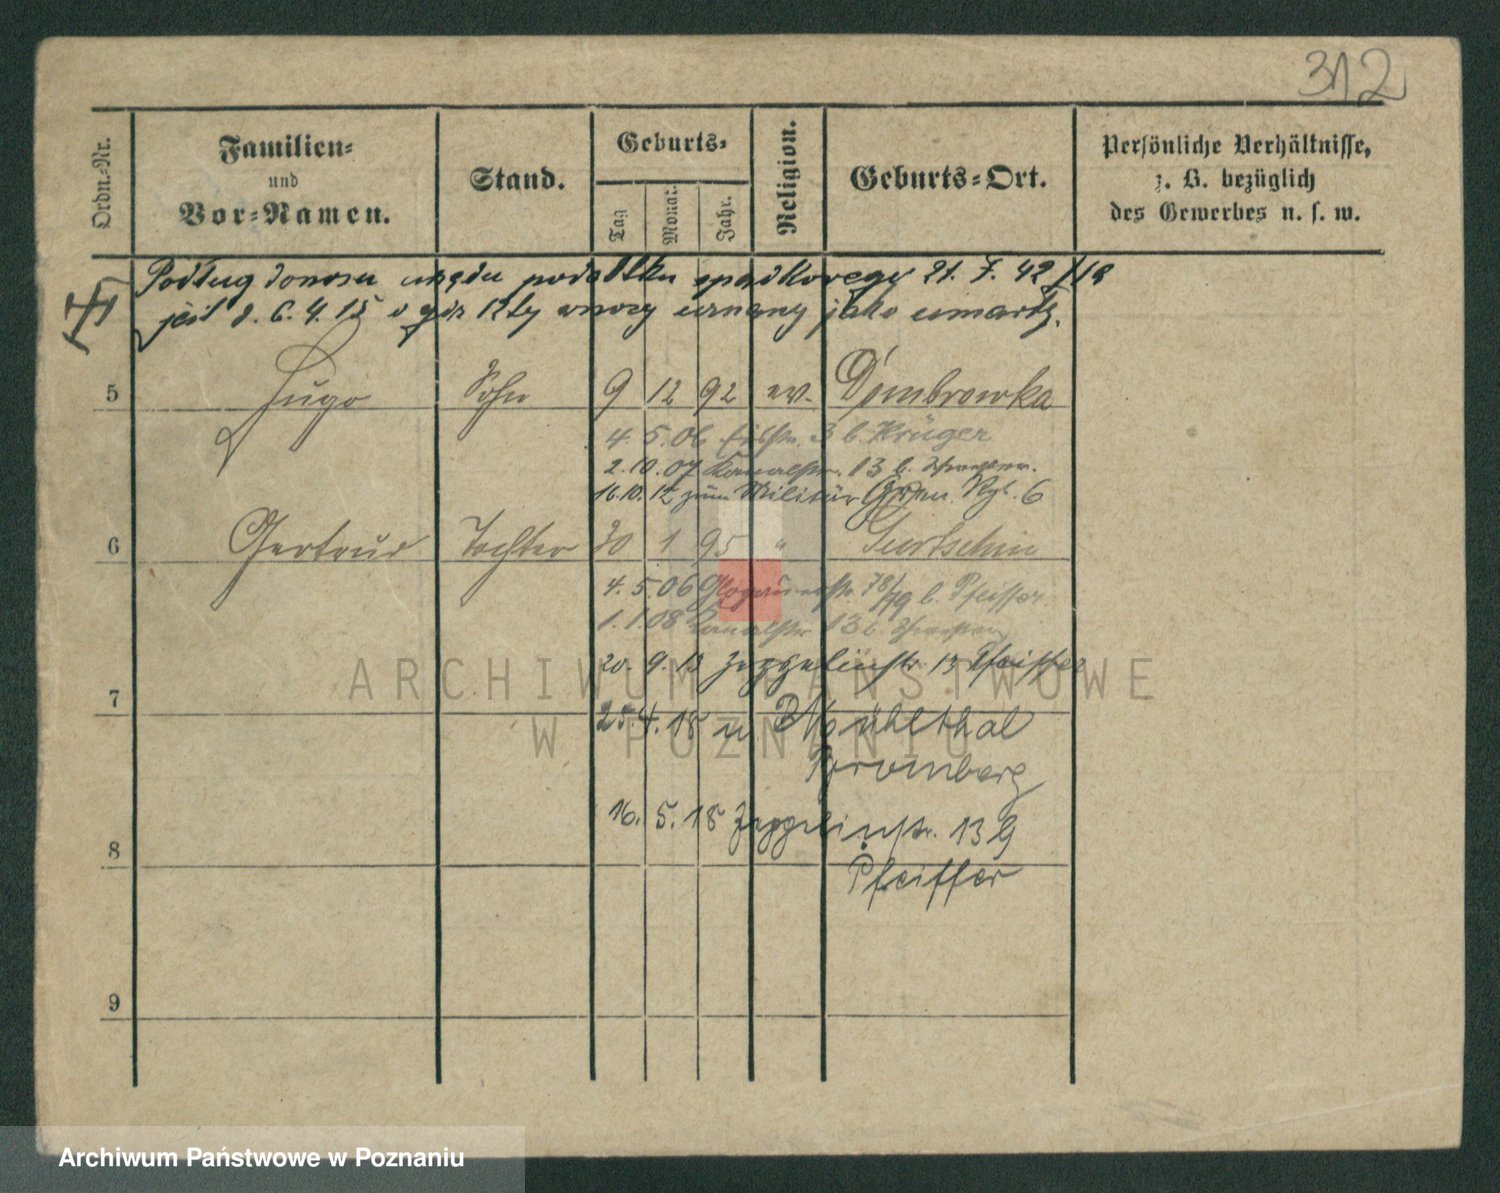 312
Ordn.-Nr.
Familien-
und
Vor-Namen.
Stand.
Geburts-
Tag
Monat.
Jahr.
Religion.
Geburts-Ort.
Persönliche Verhältnisse,
z. B. bezüglich
des Gewerbes u. s. w.
Podług donosu urzędu podatku spadkowego 21. 7. 42/18
jest d. 6. 4. 15 o 12ty w nocy uznany jako umarły.
5 Hugo Sohn 9 12 92 ev. Dombrowka
4. 5. 06 3 b. Krüger
2. 10. 07 Kanalstr. 13 b.
16. 10. 12 zum Militär Gren. Rgt. 6
6 Gertrud Tochter 30 1 95 " Gurtschin
4. 5. 06 Glogauerstr. 78/79 b. Pfeiffer
1. 1. 08 Kanalstr. 13 b.
20. 9. 13 Zeppelinstr. 13 Pfeiffer
ARCHIWUM PAŃSTWOWE
7
25. 4. 18 n Mühlthal
W POZNANIU
Bromberg
16. 5. 18 Zeppelinstr. 13 b
8
Pfeiffer
9
Archiwum Państwowe w Poznaniu